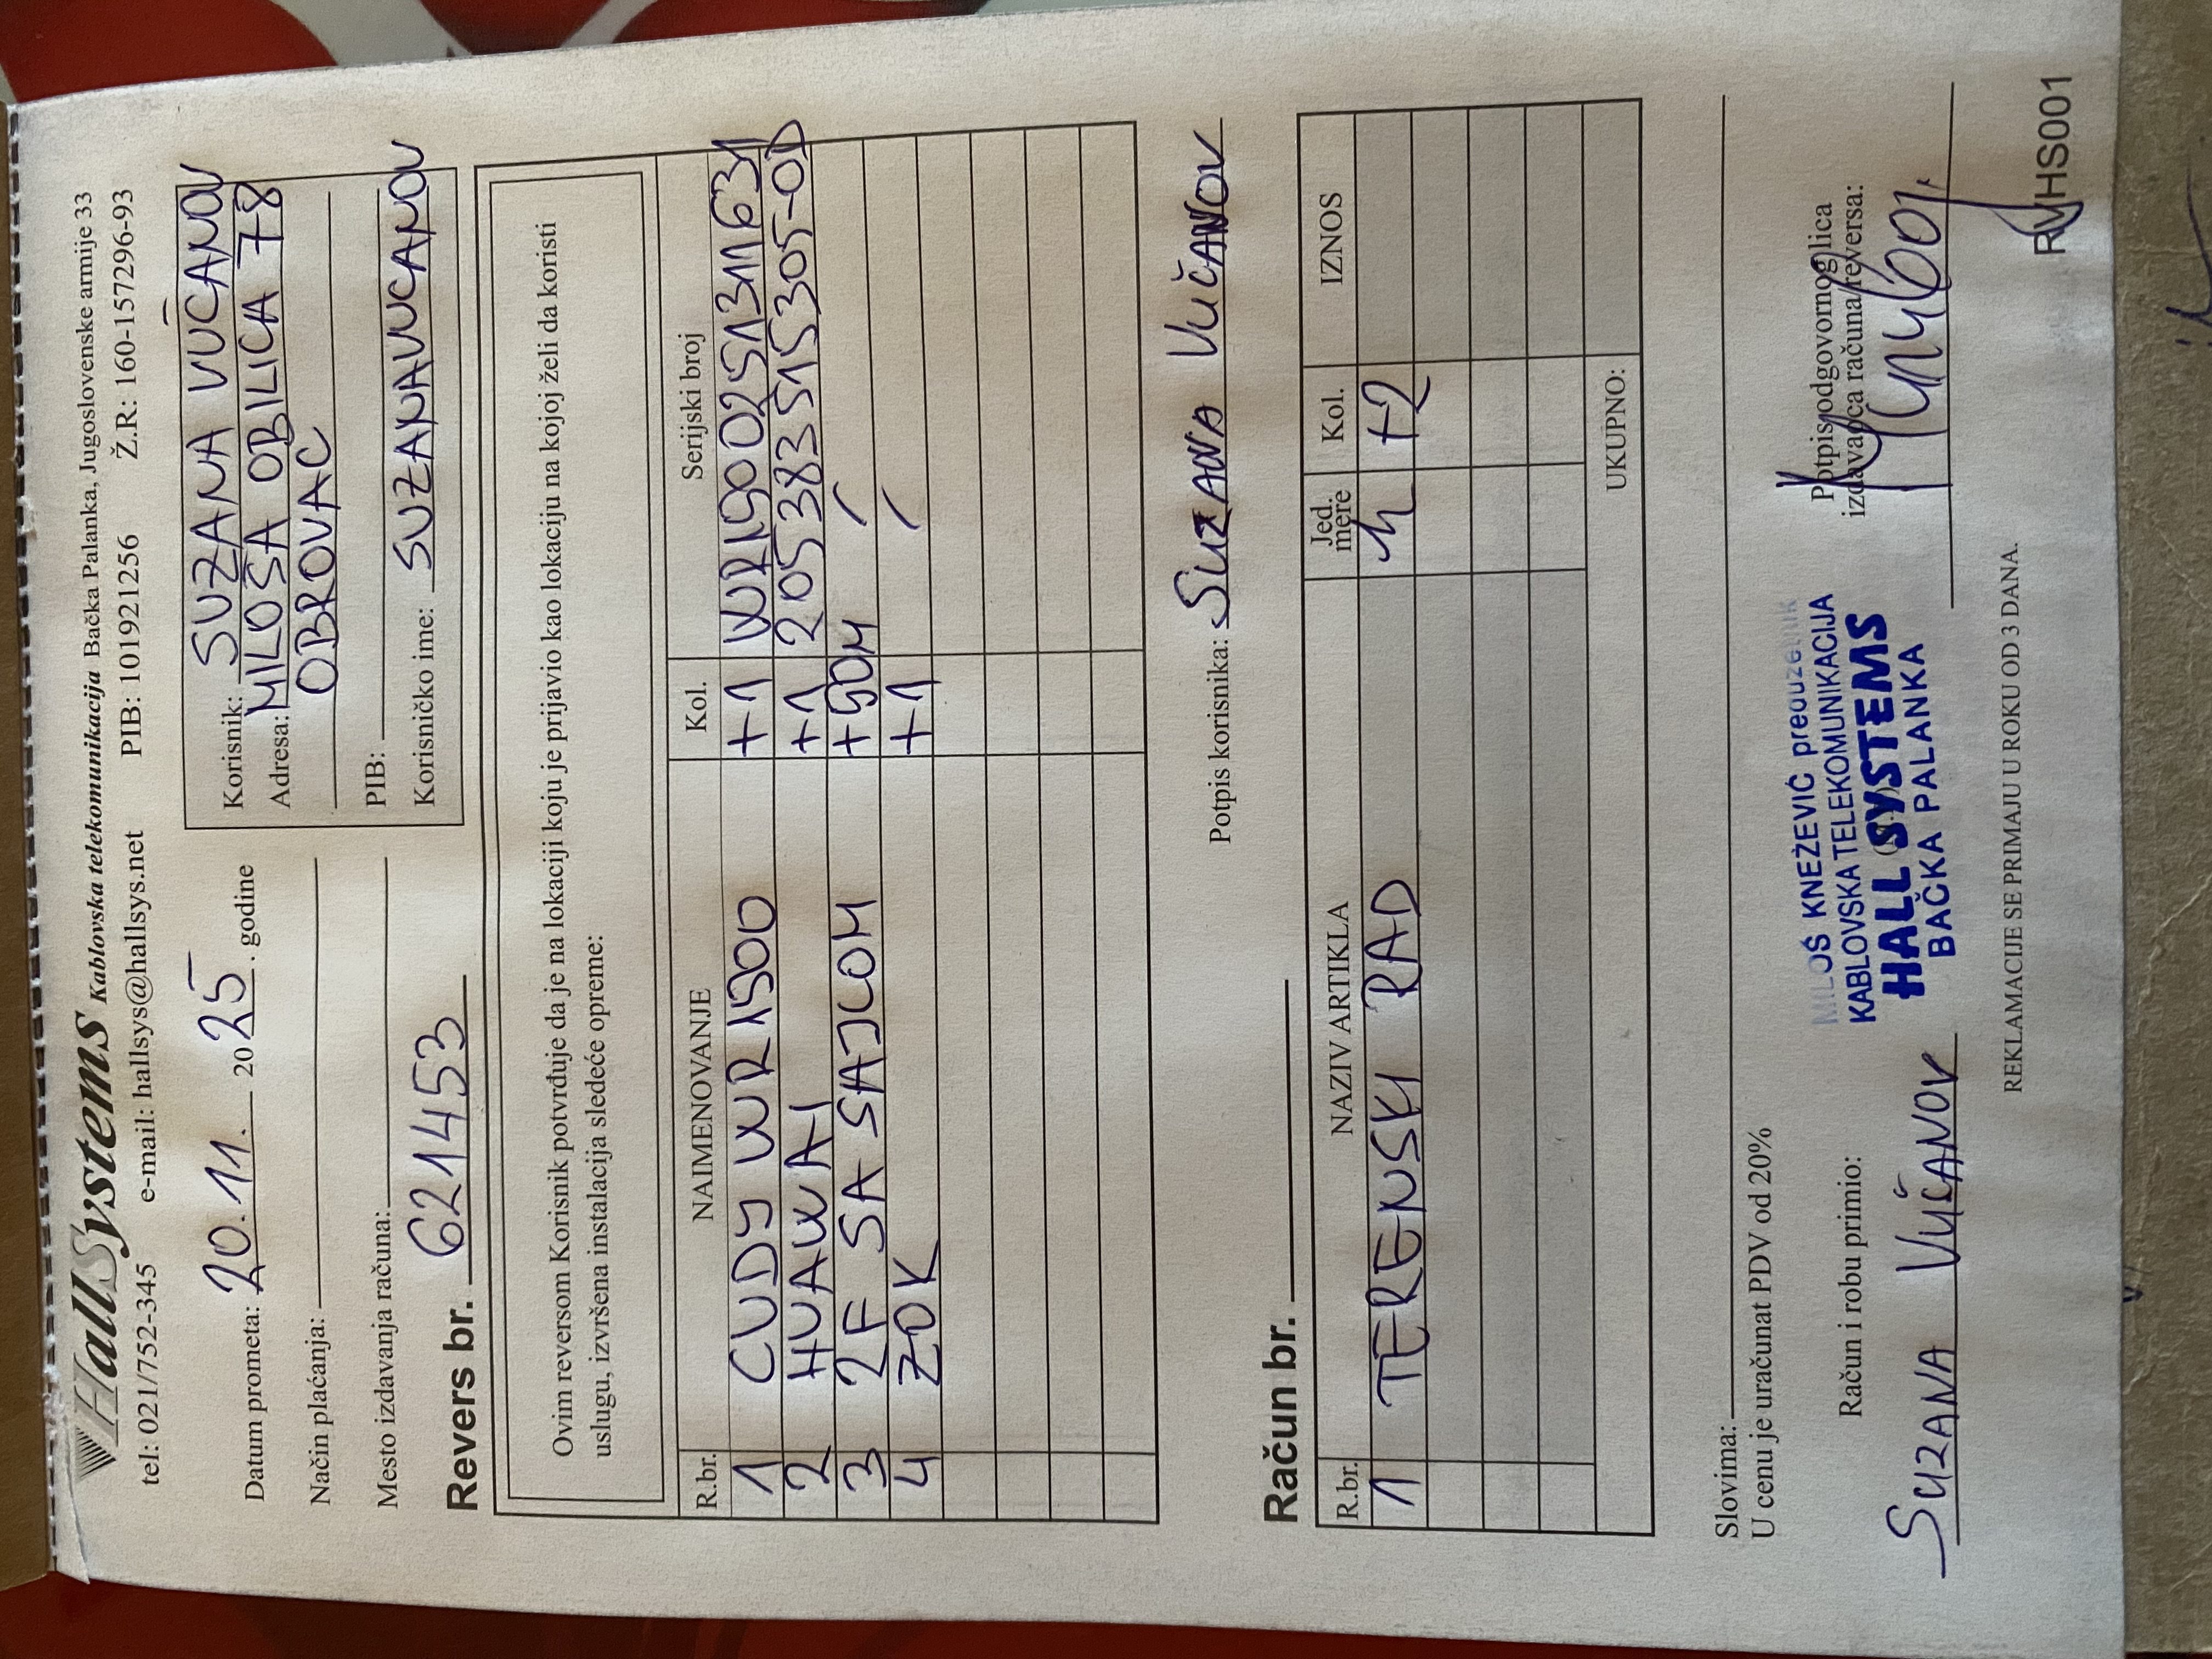 HallSystems Kablovska telekomunikacija Bačka Palanka, Jugoslovenske armije 33
tel: 021/752-345 e-mail: hallsys@hallsys.net PIB: 101921256 Ž.R: 160-157296-93
Datum prometa: 20.11. 2025. godine
Način plaćanja:
Mesto izdavanja računa:
Revers br. 621453
Korisnik: SUZANA VUČANOV
Adresa: MILOŠA OBILICA 78
OBROVAC
PIB:
Korisničko ime: SUZANAVUCANOV
Ovim reversom Korisnik potvrđuje da je na lokaciji koju je prijavio kao lokaciju na kojoj želi da koristi
uslugu, izvršena instalacija sledeće opreme:
R.br. NAIMENOVANJE Kol. Serijski broj
1 CUDY WR1500 +1
2 HUAWAI +1 205383515305-0D
3 2F SA SAJLOM +90M /
4 ZOK +1 /
Potpis korisnika: SUZANA VUČANOV
Račun br.
R.br. NAZIV ARTIKLA Jed. mere Kol. IZNOS
1 TERENSKI RAD h +2
UKUPNO:
Slovima:
U cenu je uračunat PDV od 20%
Račun i robu primio:
SUZANA VUČANOV
MILOŠ KNEŽEVIĆ preduzetnik
KABLOVSKA TELEKOMUNIKACIJA
HALL SYSTEMS
BAČKA PALANKA
Potpis odgovornog lica
izdavaoca računa/reversa:
REKLAMACIJE SE PRIMAJU U ROKU OD 3 DANA.
RVHS001